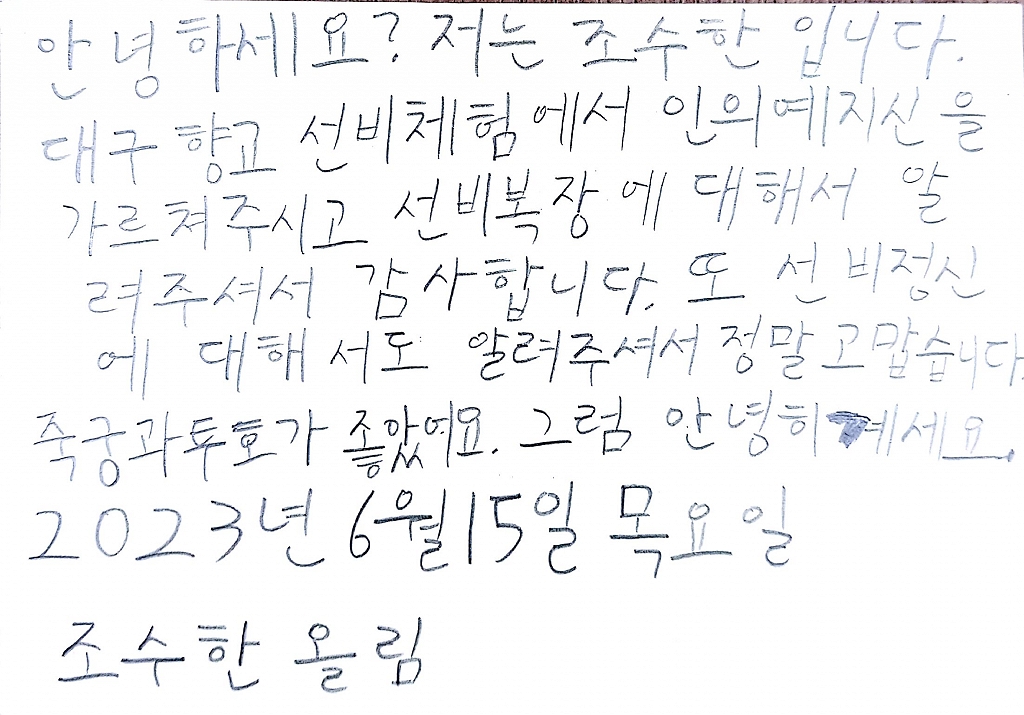 안녕하세요? 저는 조수한 입니다.
대구 향교 선비체험에서 인의예지신을
가르쳐주시고 선비복장에 대해서 알
려주셔서 감사합니다. 또 선비정신
에 대해서도 알려주셔서 정말 고맙습니다
죽궁과투호가 좋았여요. 그럼 안녕히계세요.
2023년 6월15일 목요일
조수한 올림